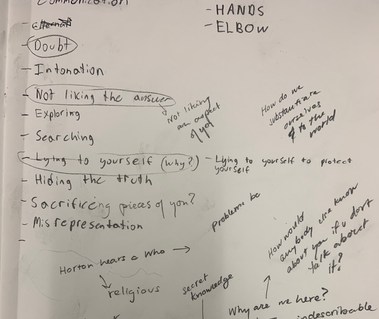 Communication
- HANDS
- ELBOW
- Doubt
- Intonation
- Not liking the answer
Not liking
an aspect
of you
- Exploring
- Searching
How do we
substantiate
ourselves
to the
world
- Lying to yourself (why?) - Lying to yourself to protect
yourself
- Hiding the truth
- Sacrificing pieces of you?
- Misrepresentation
-
Horton hears a Who →
problems be
religious
secret
knowledge
How would
anybody else know
about you if u dont
talk about
it?
Why are we here?
indescribable